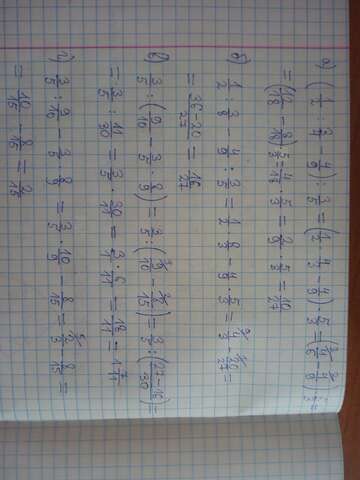 а) (1/2 : 3/4 − 4/9) : 3/5 = (1/2 · 4/3 − 4/9) · 5/3 = (4/6 − 4/9) · 5/3 =
= (12/18 − 8/18) · 5/3 = 4/18 · 5/3 = 2/9 · 5/3 = 10/27
б) 1/2 : 3/8 − 4/9 : 3/5 = 1/2 · 8/3 − 4/9 · 5/3 = 4/3 − 20/27 =
= 36−20/27 = 16/27
в) 3/5 : (9/10 − 3/5 · 8/9) = 3/5 : (9/10 − 8/15) = 3/5 : (27−16/30) =
= 3/5 : 11/30 = 3/5 · 30/11 = 3/1 · 6/11 = 18/11 = 1 7/11
г) 3/5 : 9/10 − 3/5 · 8/9 = 3/5 · 10/9 − 8/15 = 2/3 − 8/15 =
= 10/15 − 8/15 = 2/15